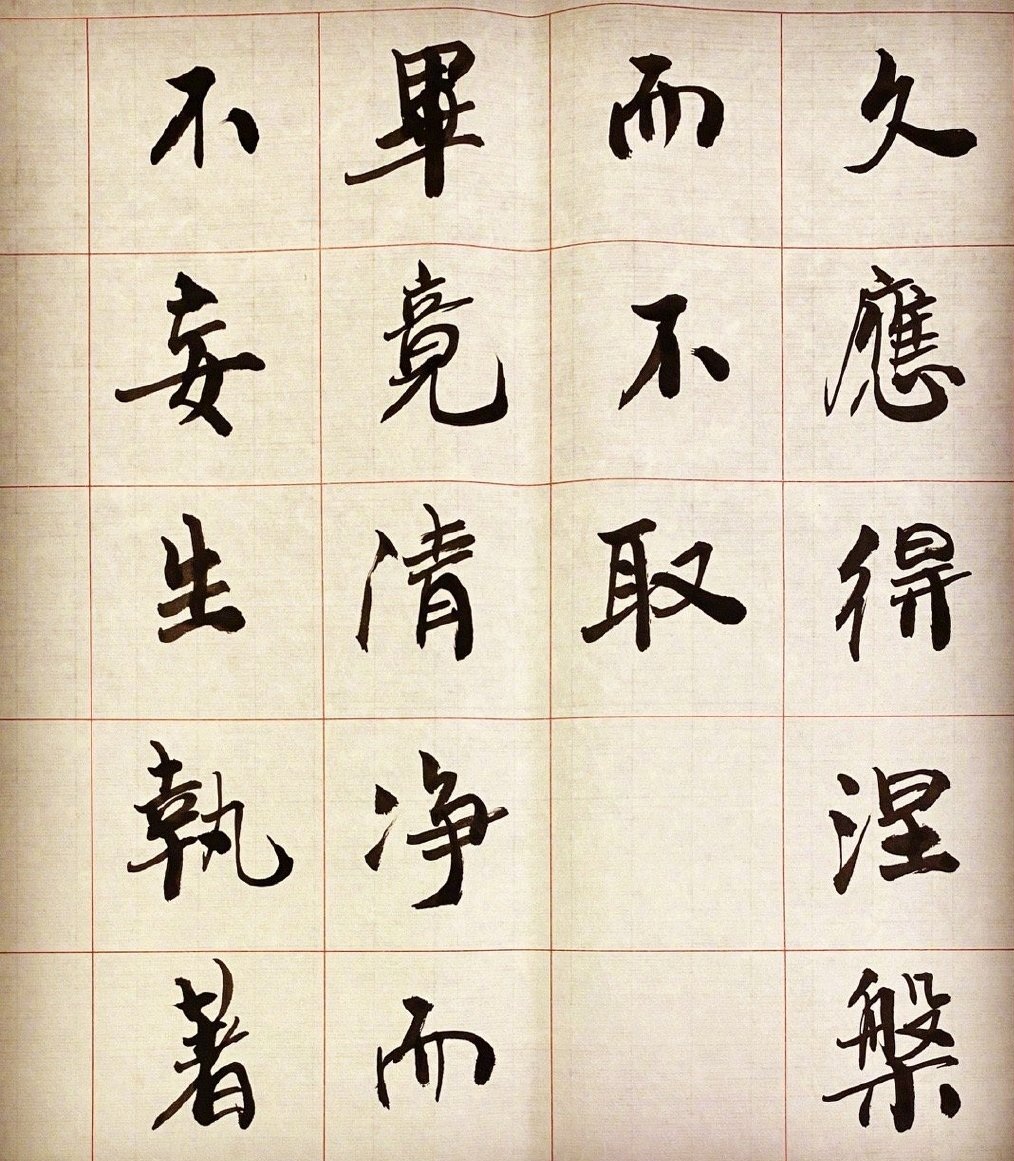 久應得涅槃
而不取
畢竟清净而
不妄生執著